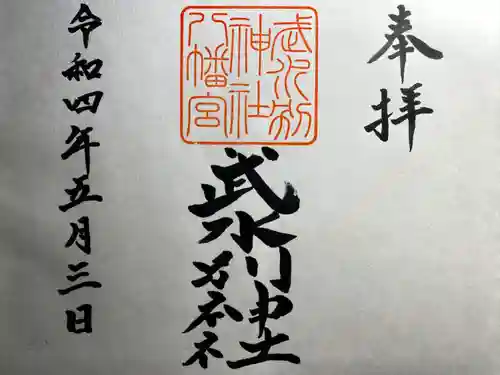 奉拝
武水別
神社
八幡宮
武水別神社
令和四年五月三日